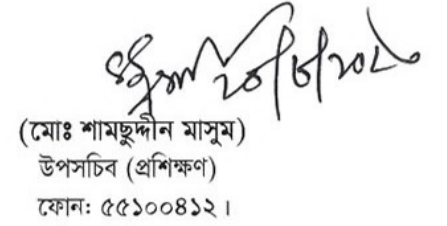 (মোঃ শামছুদ্দীন মাসুম)
উপসচিব (প্রশিক্ষণ)
ফোন: ৫৫১০০৪১২।